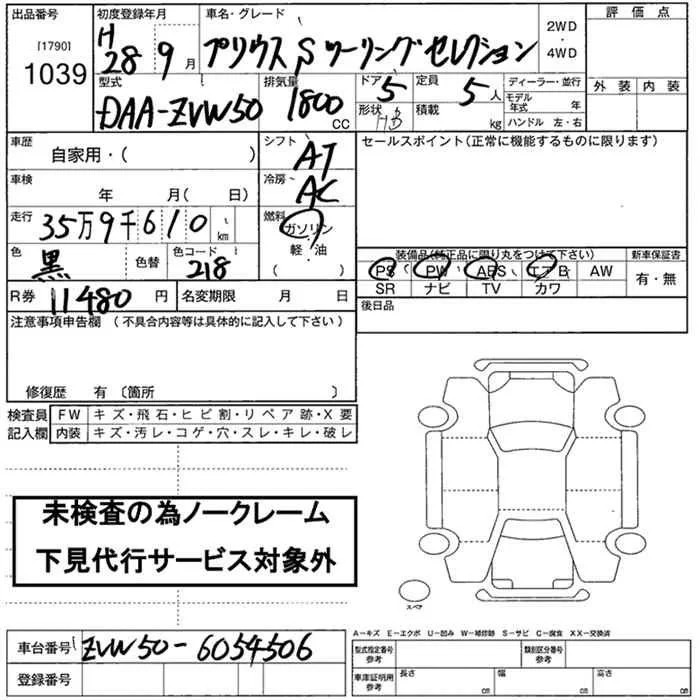 出品番号 初度登録年月 車名・グレード 評価点
[1790] H 28 9月 プリウス Sツーリングセレクション 2WD・4WD
1039
型式 排気量 ドア 定員 ディーラー・並行 外装 内装
DAA-ZVW50 1800 CC 5 5人 モデル年式 年
形状 HB 積載 kg ハンドル 左・右
車歴 シフト セールスポイント(正常に機能するものに限ります)
自家用・( ) AT
車検 冷房
年 月( 日) AC
走行 燃料
35万9千610 km ガソリン
色 色替 色コード 軽・油
黒 218 ( )
装備品(純正品に限り丸をつけて下さい) 新車保証書
PS PW ABS エアB AW 有・無
SR ナビ TV カワ
R券 11480円 名変期限 月 日 後日品
注意事項申告欄 (不具合内容等は具体的に記入して下さい)
修復歴 有 〔箇所 〕
検査員 FW キズ・飛石・ヒビ割・リペア跡・X要
記入欄 内装 キズ・汚レ・コゲ・穴・スレ・キレ・破レ
未検査の為ノークレーム
下見代行サービス対象外
スペア
A-キズ E-エクボ U-凹み W-補修跡 S-サビ C-腐食 XX-交換済
車台番号 ZVW50-6054506 型式指定番号 参考 類別区分番号 参考
登録番号 車庫証明用 参考 長さ cm 幅 cm 高さ cm